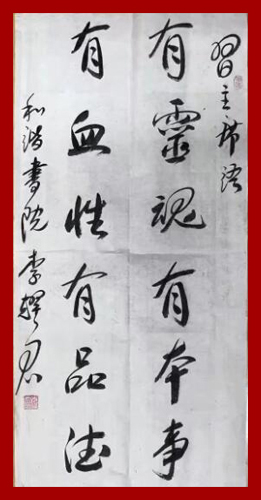 習主席語
有靈魂有本事
有血性有品德
和谐書院李耀君